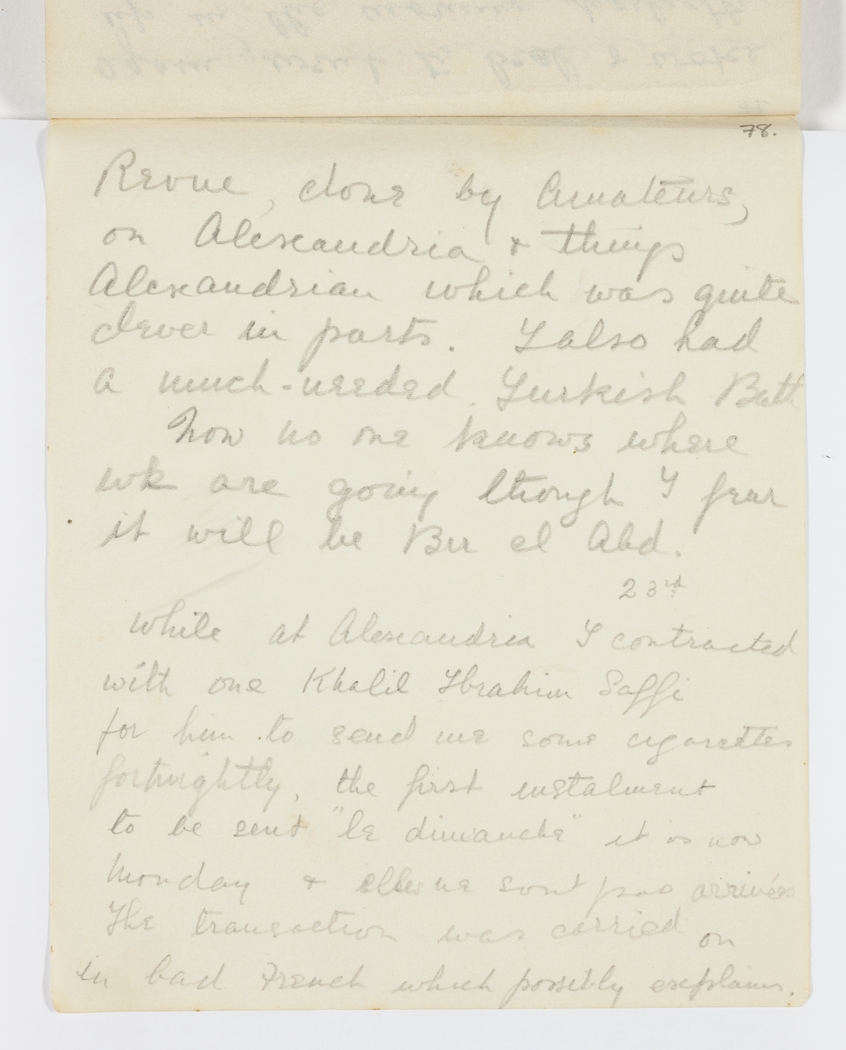 78.
Revue, done by Amateurs,
on Alexandria & things
Alexandrian which was quite
clever in parts. I also had
a much-needed Turkish Bath
Now no one knows where
we are going though I fear
it will be Bir el Abd.
23rd
While at Alexandria I contracted
with one Khalil Ibrahim Saffi
for him to send me some cigarettes
fortnightly, the first instalment
to be sent "le dimanche" it is now
Monday & elles ne sont pas arrivées
The transaction was carried on
in bad French which possibly explains.